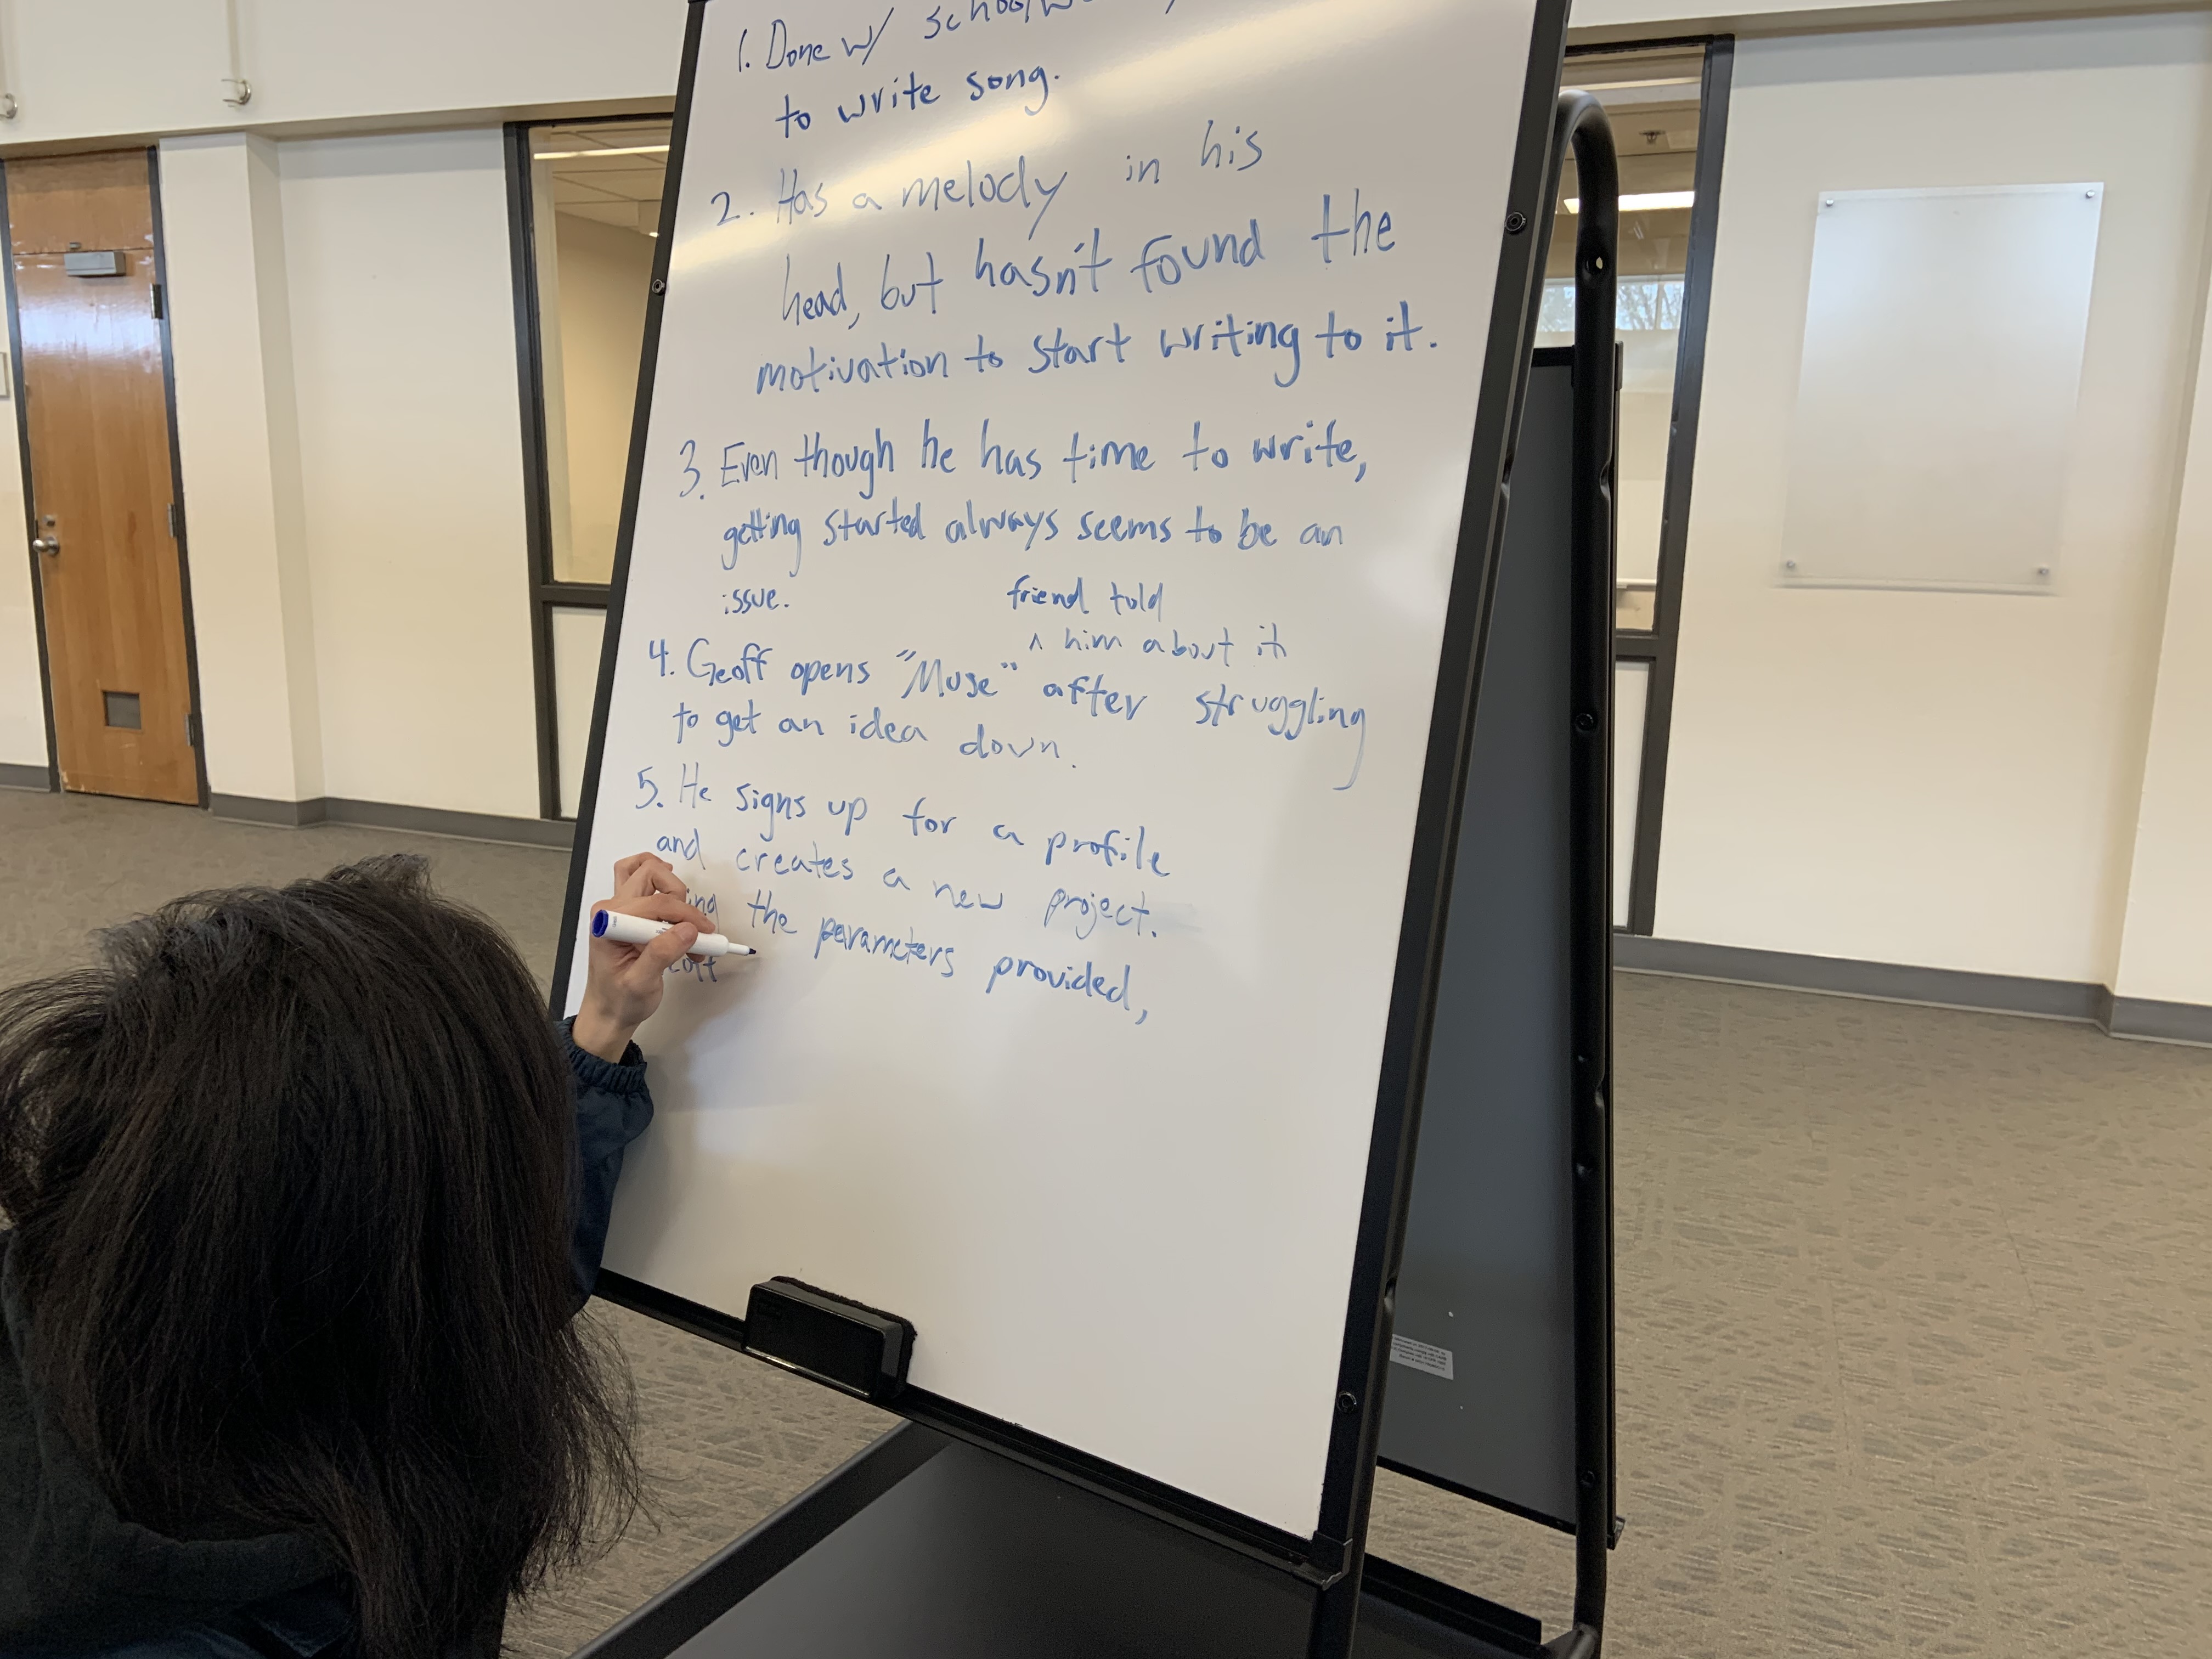 1. Done w/
to write song.
2. Has a melody in his
head, but hasn't found the
motivation to start writing to it.
3. Even though he has time to write,
getting started always seems to be an
issue.
friend told
^ him about it
4. Geoff opens "Muse" after struggling
to get an idea down.
5. He signs up for a profile
and creates a new project.
the parameters provided,